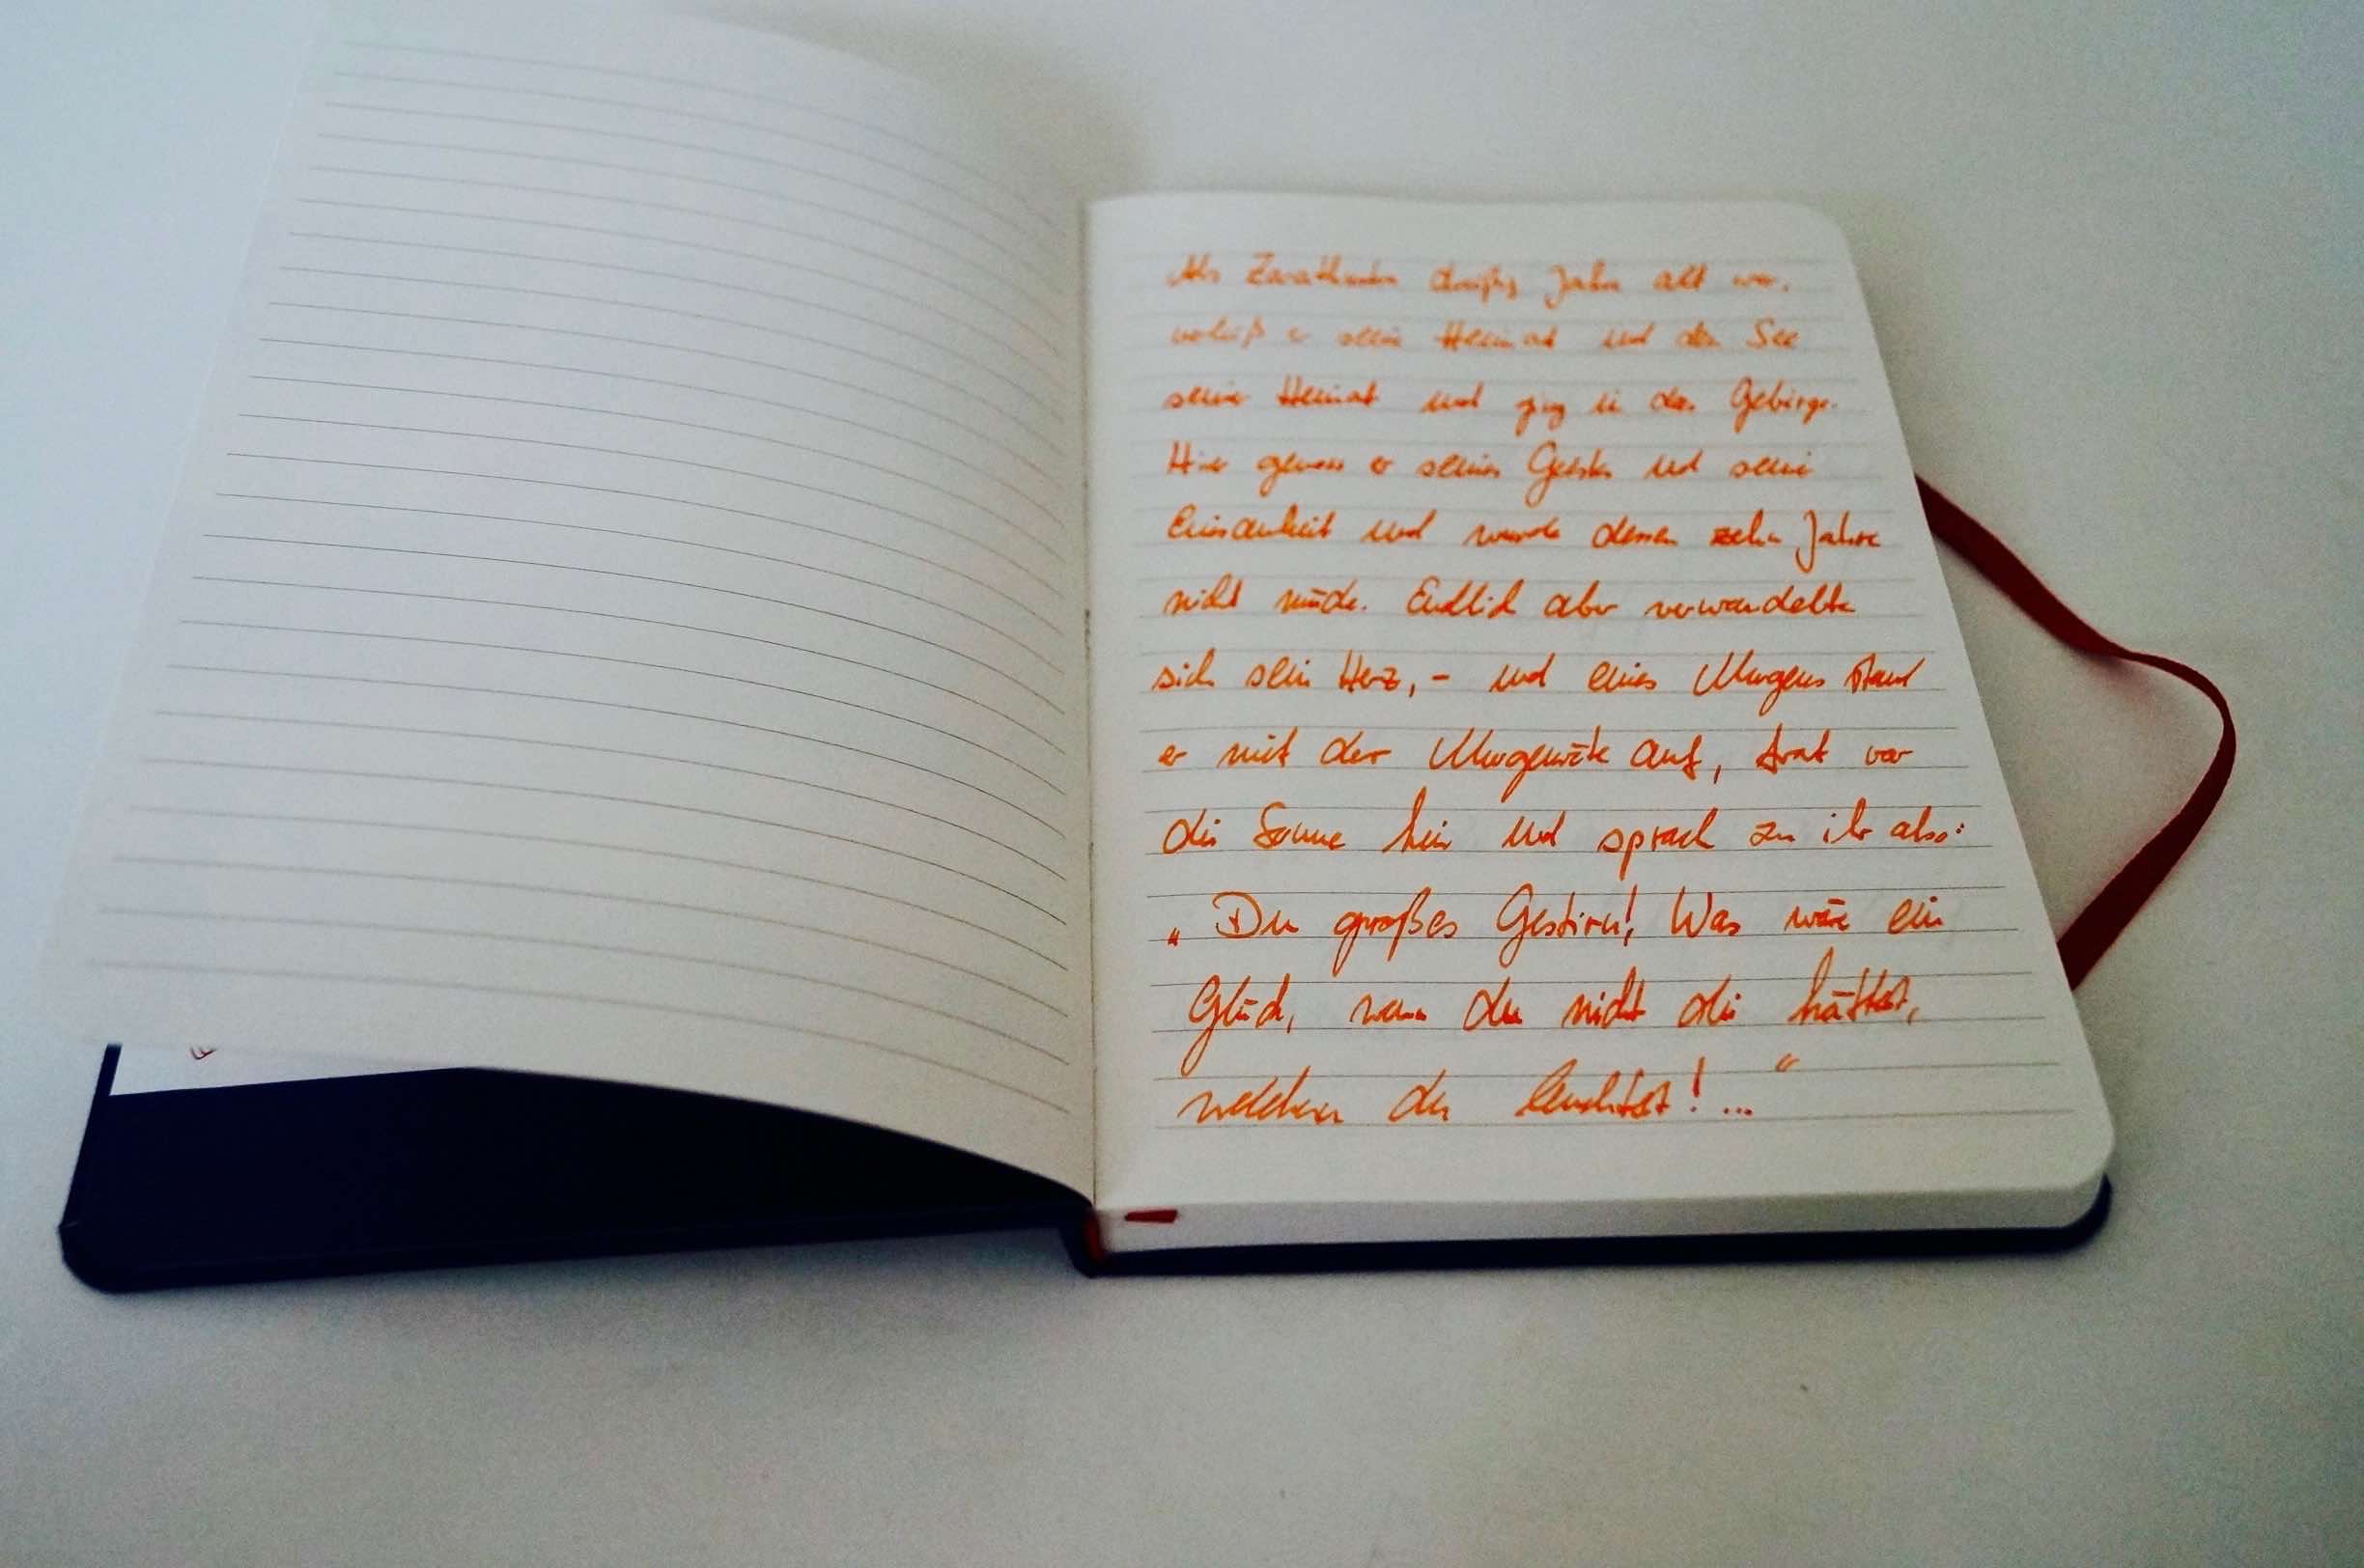 Als Zarathustra dreißig Jahre alt war,
verließ er seine Heimat und den See
seiner Heimat und ging in das Gebirge.
Hier genoss er seines Geistes und seine
Einsamkeit und wurde dessen zehn Jahre
nicht müde. Endlich aber verwandelte
sich sein Herz, - und eines Morgens stand
er mit der Morgenröte auf, trat vor
die Sonne hin und sprach zu ihr also:
„Du großes Gestirn! Was wäre ein
Glück, wenn du nicht die hättest,
welchen du leuchtest! ..."